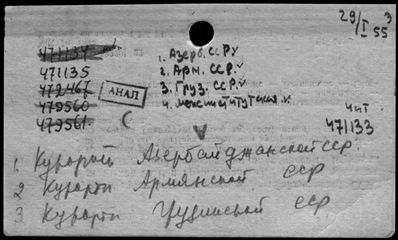 29/I 55 3
471134
471135
472467
479560
479561
АНАЛ
С
1. Азерб. ССР. v
2. Арм. ССР. v
3. Груз. ССР. v
4. v
v
чит
471133
1. Курорты Азербайджанской ССР.
2 Курорты Армянской ССР
3 Курорты Грузинской ССР